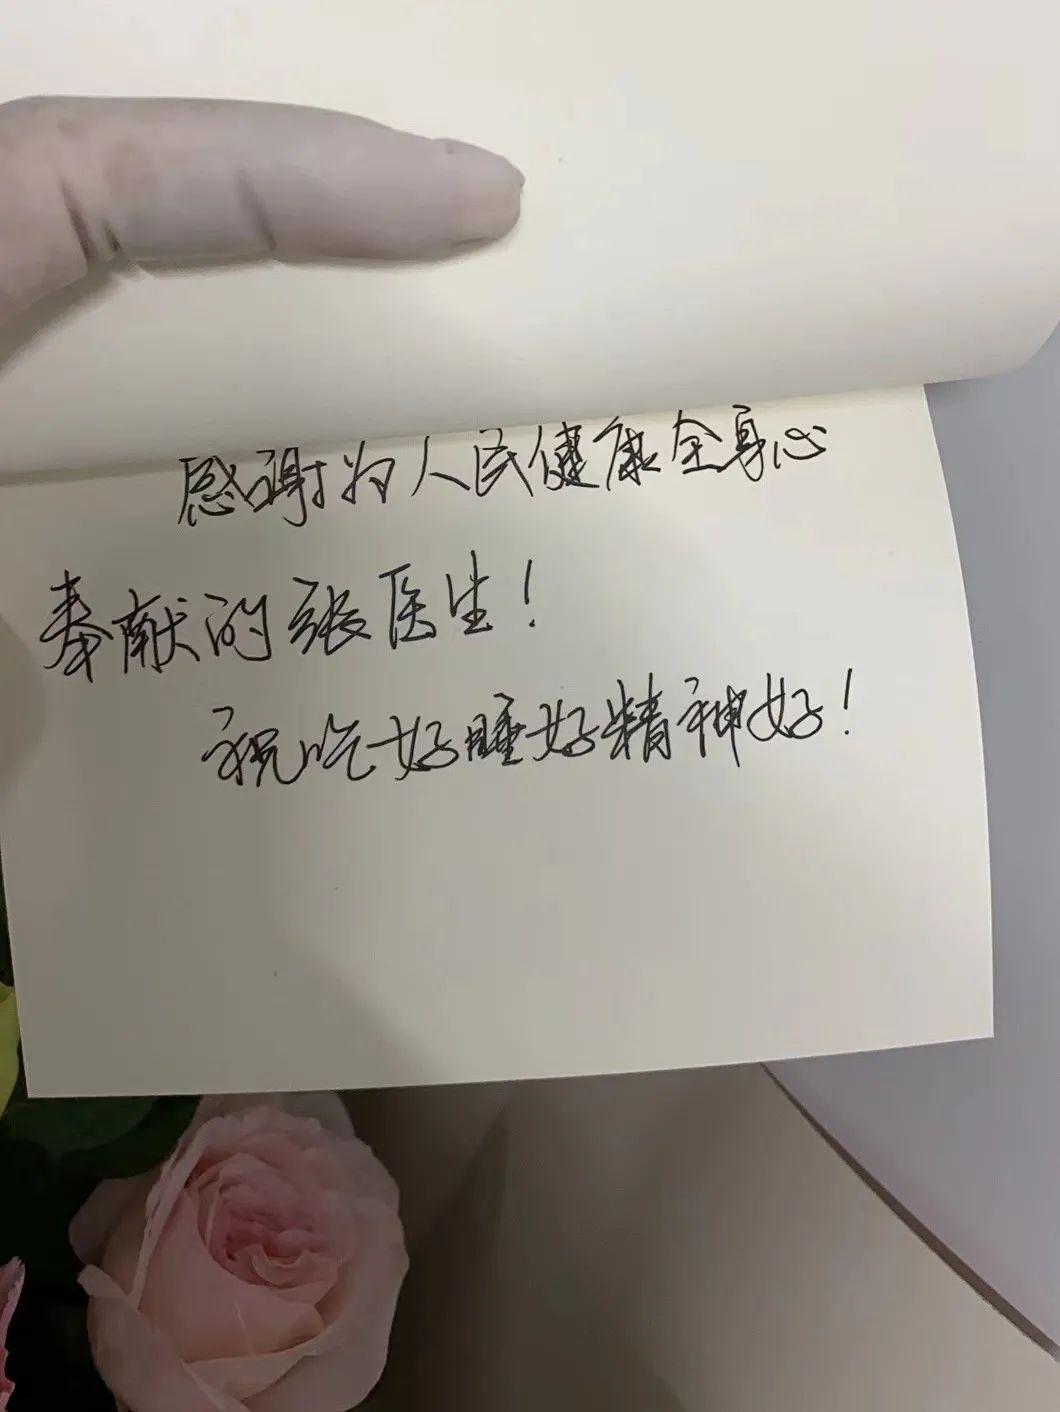 感谢为人民健康全身心
奉献的张医生！
祝吃好睡好精神好！